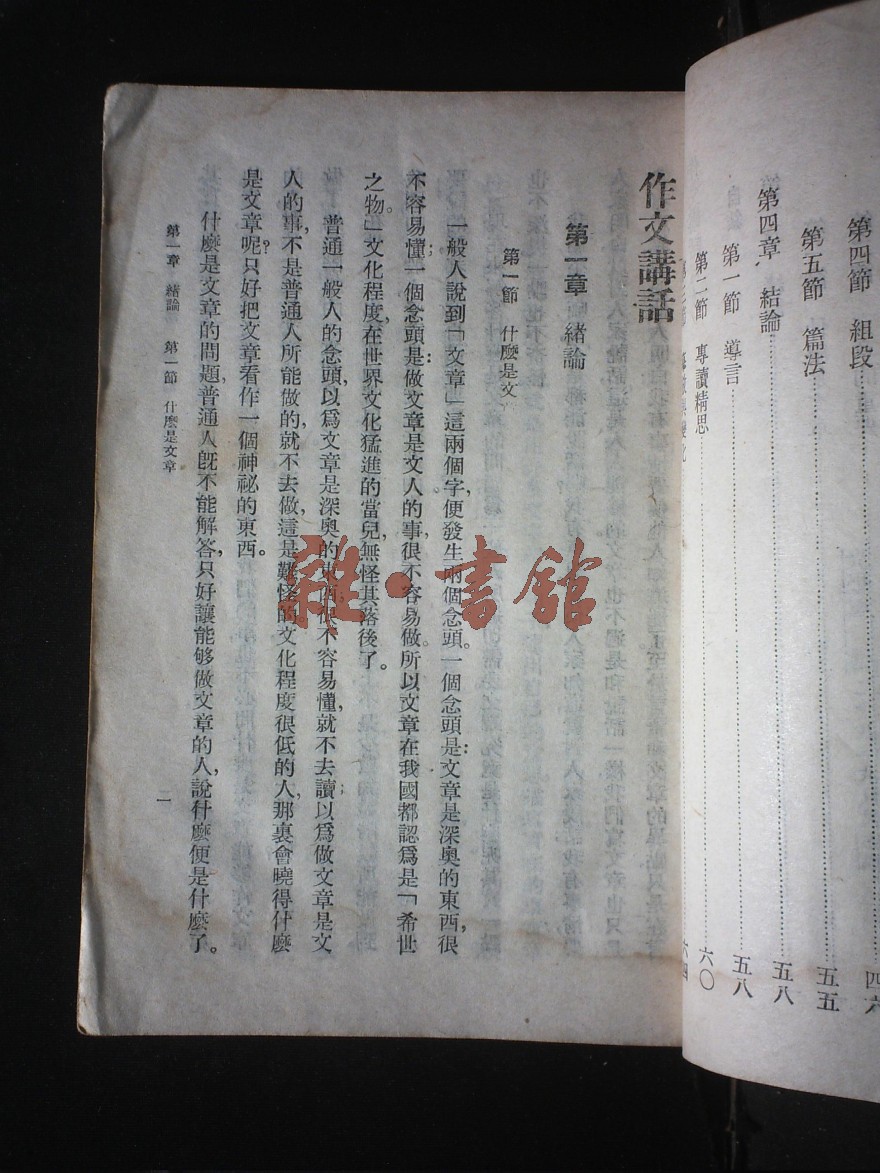 第四節 組段 四六
第五節 篇法 五五
第四章 結論 五八
第一節 導言 五八
第二節 專讀精思 六〇
六四
作文講話
第一章 緒論
第一節 什麼是文
一般人說到「文章」這兩個字，便發生兩個念頭。一個念頭是：文章是深奧的東西，很
不容易懂；一個念頭是：做文章是文人的事，很不容易做。所以文章在我國都認爲是「希世
之物。」文化程度在世界文化猛進的當兒，無怪其落後了。
普通一般人的念頭，以爲文章是深奧的東西，很不容易懂，就不去讀；以爲做文章是文
人的事，不是普通人所能做的，就不去做，這是難怪的。文化程度很低的人，那裏會曉得什麼
是文章呢？只好把文章看作一個神祕的東西。
什麼是文章的問題，普通人旣不能解答，只好讓能够做文章的人，說什麼便是什麼了。
第一章 緒論 第一節 什麼是文章
一
雜·書館